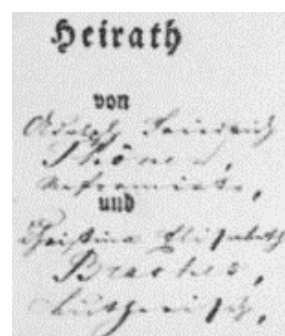 Heirath
von
Adolph Friedrich
Schöned,
Reformirt,
und
Christina Elisabeth
Brache,
Lutherisch,